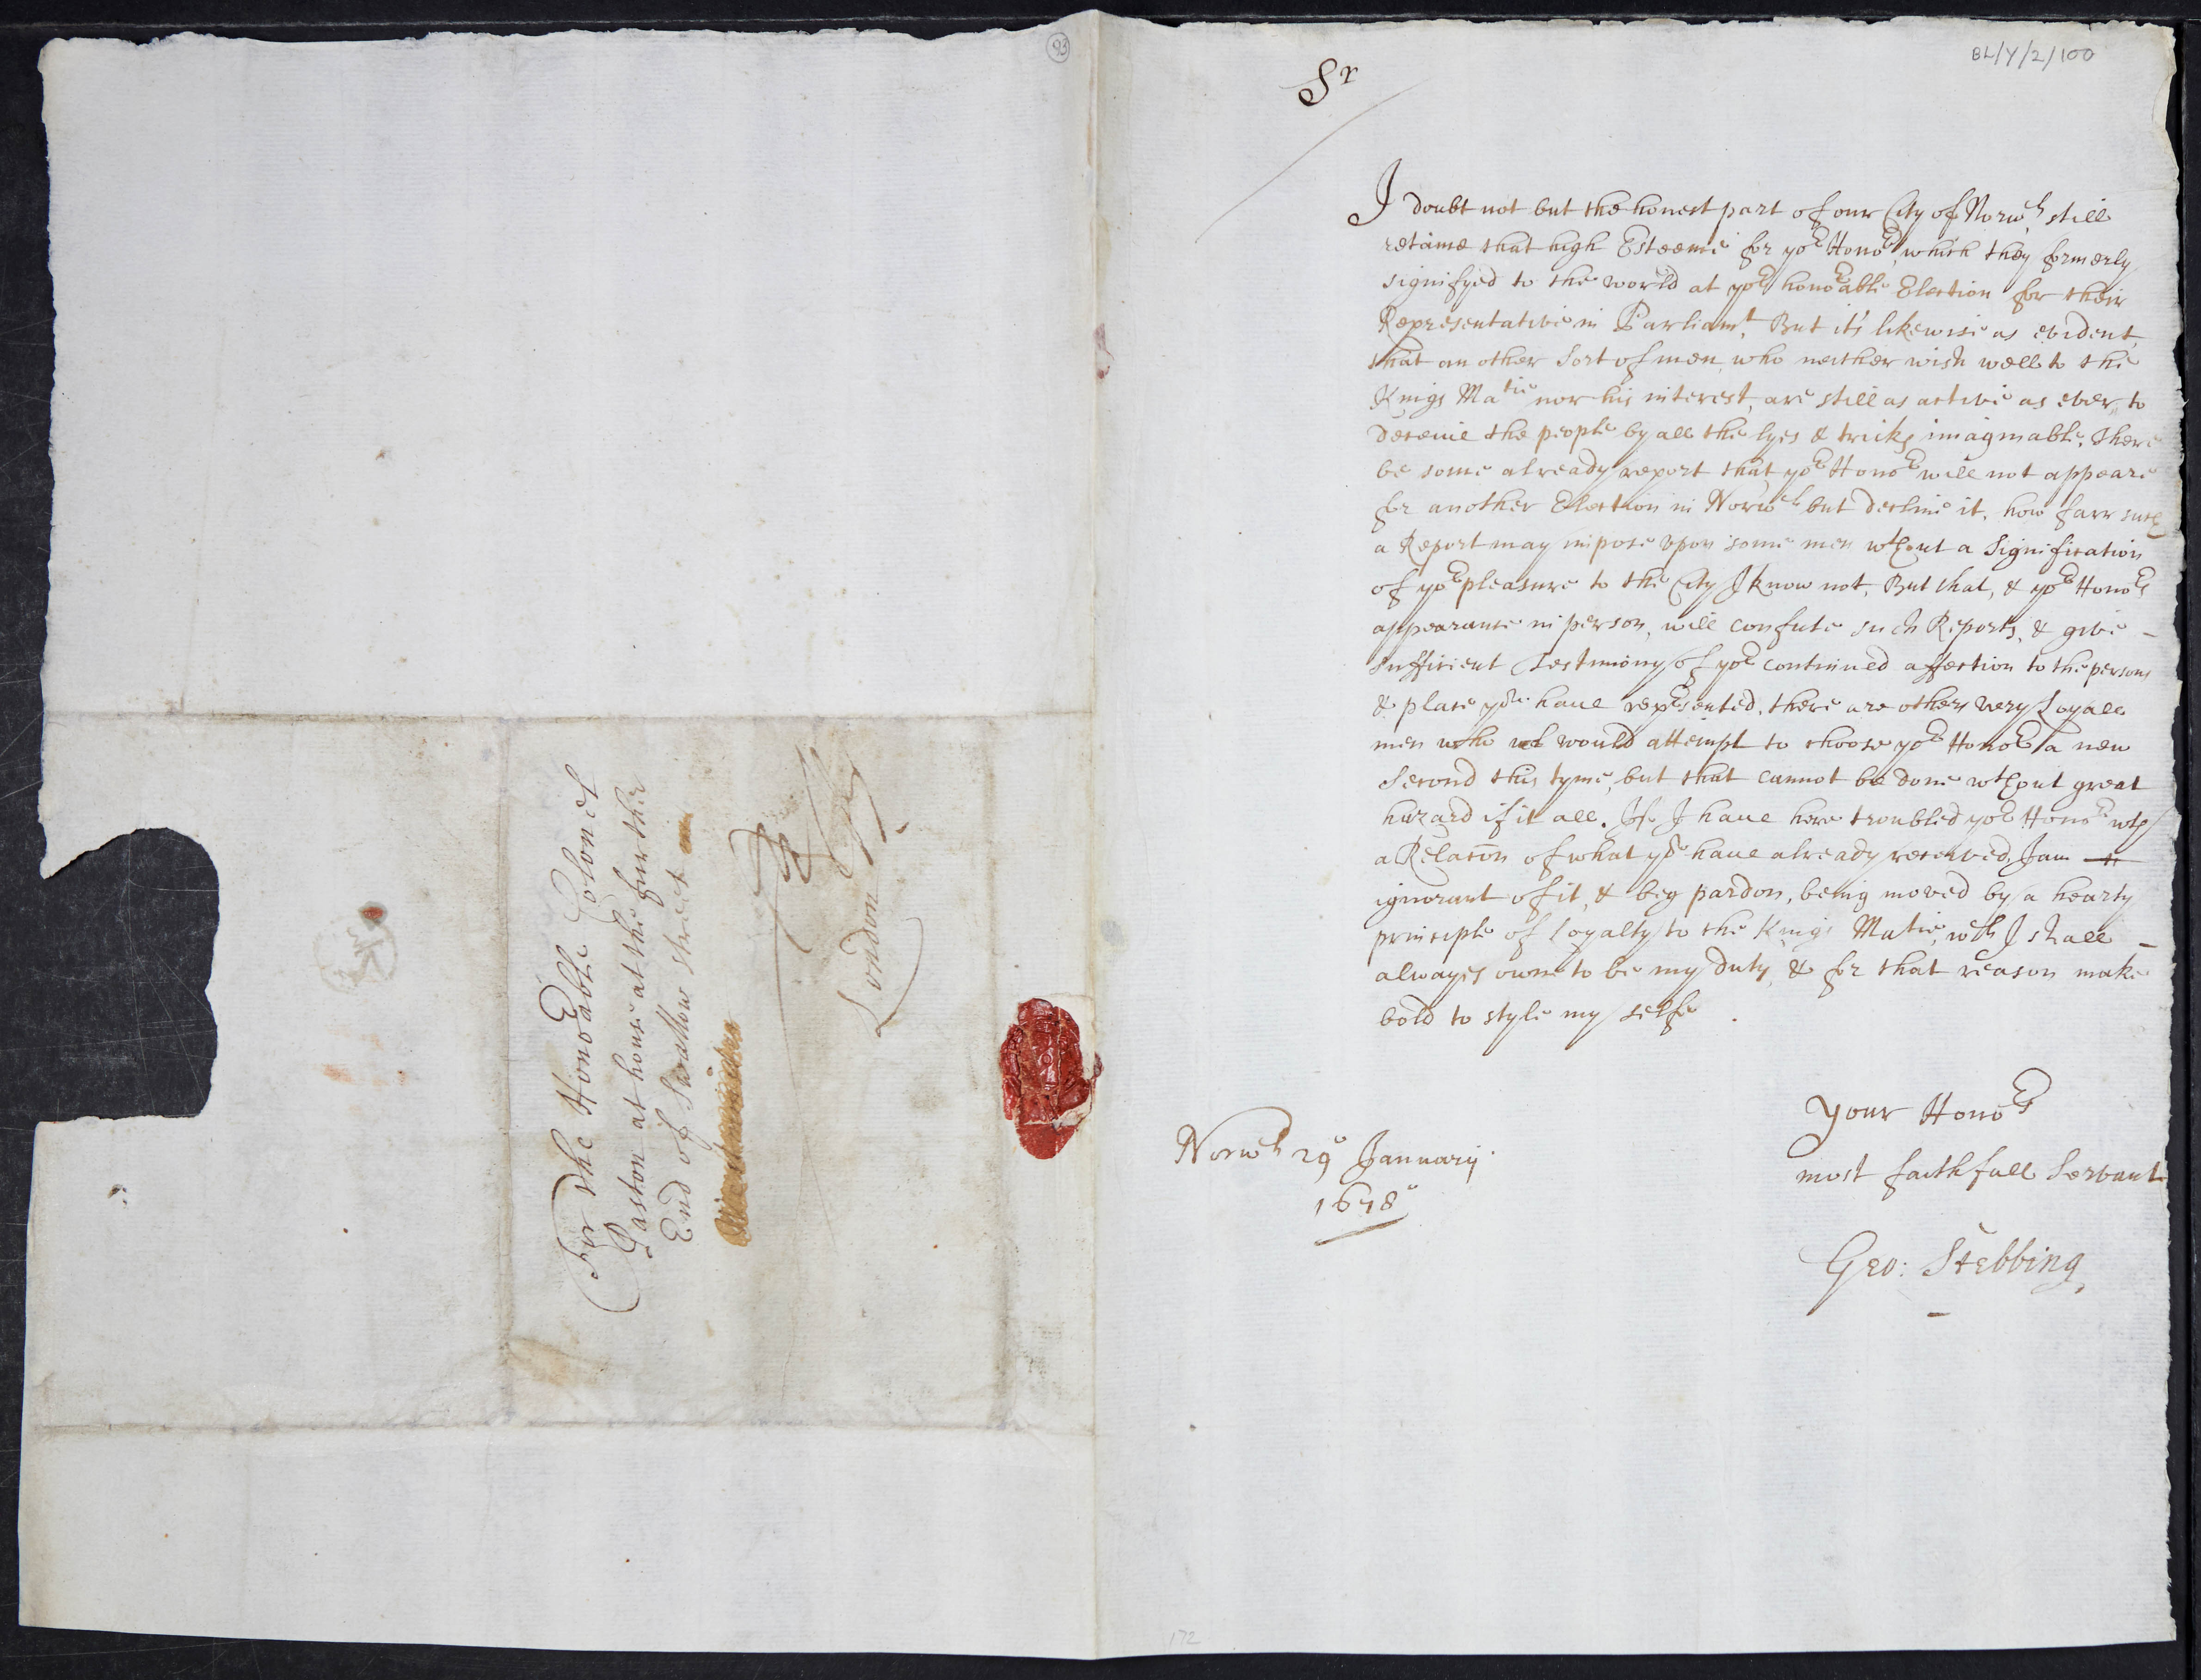 93
For the Honoble Colonel
Paston at house at the further
End of Swallow street
London
BL/Y/2/100
Sr
I doubt not but the honest part of our City of Norwch still
retaine that high Esteeme for yor Honor, which they formerly
signifyed to the world at yor honorable Election for their
Representative in Parliamt. But it's likewise as evident,
that an other sort of men, who neither wish well to the
Kings Matie nor his interest, are still as active as ever, to
deceive the people by all the lyes & tricks imaginable. There
be some already report that yor Honor will not appeare
for another Election in Norwch but decline it, how farr such
a Report may impose vpon some men wthout a Signification
of yor pleasure to the City I know not, But that, & yor Honors
appearance in person, will confute such Reports, & give -
sufficient Testimony of yor continued affection to the persons
& place you have represented. there are others very Loyall
men who would attempt to choose yor Honor a new
Second this tyme, but that cannot be done wthout great
hazard if it all. If I have here troubled yor Honor wth
a Relacon of what you have already received, I am
ignorant of it, & beg pardon, being moved by a hearty
principle of Loyalty to the Kings Matie, wch I shall -
alwayes owne to be my duty, & for that reason make
bold to style my selfe.
your Honors
most faithfull Servant
Geo: Stebbing
Norwch 29 January
1678
172